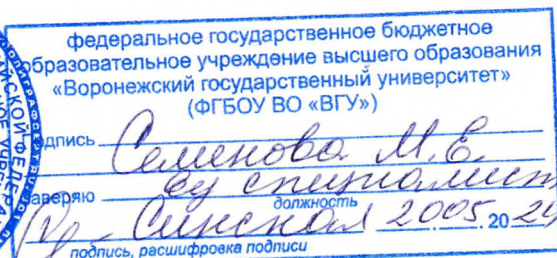 федеральное государственное бюджетное
образовательное учреждение высшего образования
«Воронежский государственный университет»
(ФГБОУ ВО «ВГУ»)
одпись Семенова М.Е.
заверяю специалист
должность
20.05. 20 24
подпись, расшифровка подписи